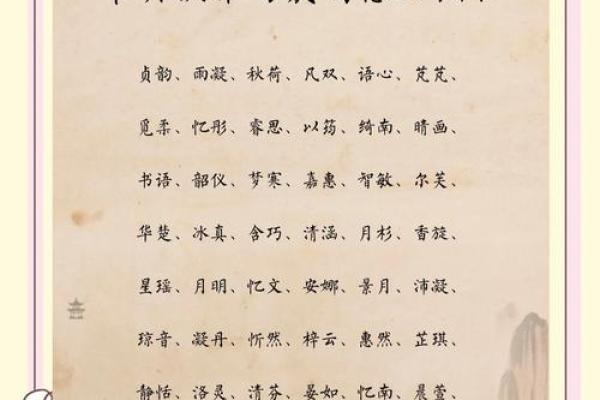 贞韵、雨凝、秋荷、凡双、语心、芃芃、
觅柔、忆彤、睿思、以筠、绮南、晴画、
书语、韶仪、梦寒、嘉惠、智敏、尔芙、
华楚、冰真、含巧、清涵、月杉、香旋、
星瑶、月明、忆文、安娜、景月、沛凝、
琼音、凝丹、忻然、梓云、惠然、芷琪、
静恬、洛灵、清芬、晏如、忆南、晨萱、